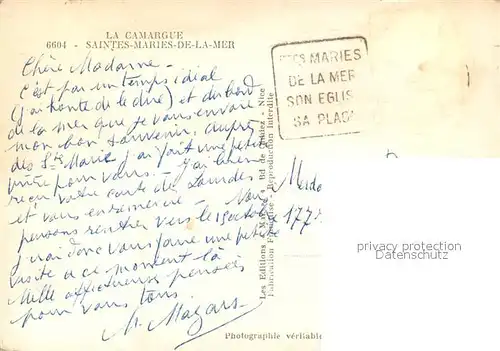 LA CAMARGUE
6604 - SAINTES-MARIES-DE-LA-MER
Chère Madame -
C'est par un temps idéal
(j'ai honte de le dire) et du bord
de la mer que je vous envoie
mon bon souvenir, auprès
des Stes Marie j'ai fait une petite
prière pour vous. - J'ai bien
reçu votre carte de Lourdes
et vous en remercie - Nous
pensons rentrer vers le 15 octobre
j'irai donc vous faire une petite
visite à ce moment là
Mille affectueuses pensées
pour vous tous
M. Mazars
STES MARIES
DE LA MER
SON EGLIS
SA PLAG
Les Editions " MAR " Bd de - Nice
Fabrication Française - Reproduction Interdite
Mada
177
privacy protection
Datenschutz
Photographie véritable